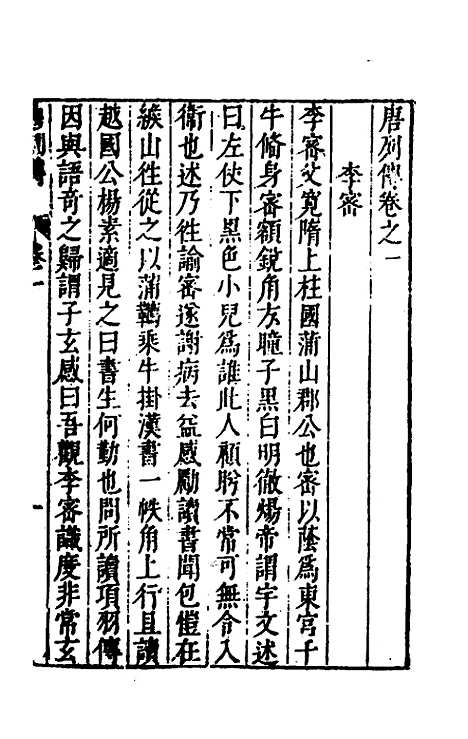 唐列傳卷之一
李密
李密父寬隋上柱國蒲山郡公也密以蔭爲東宮千
牛脩身密額銳角方瞳子黑白明徹煬帝謂宇文述
曰左仗下黑色小兒爲誰此人顧盻不常可無令入
衞也述乃徃諭密遂謝病去益感勵讀書聞包愷在
緱山徃從之以蒲韉乘牛掛漢書一帙角上行且讀
越國公楊素適見之曰書生何勤也問所讀項羽傳
因與語竒之歸謂子玄感曰吾觀李密識度非常玄
卷一
一